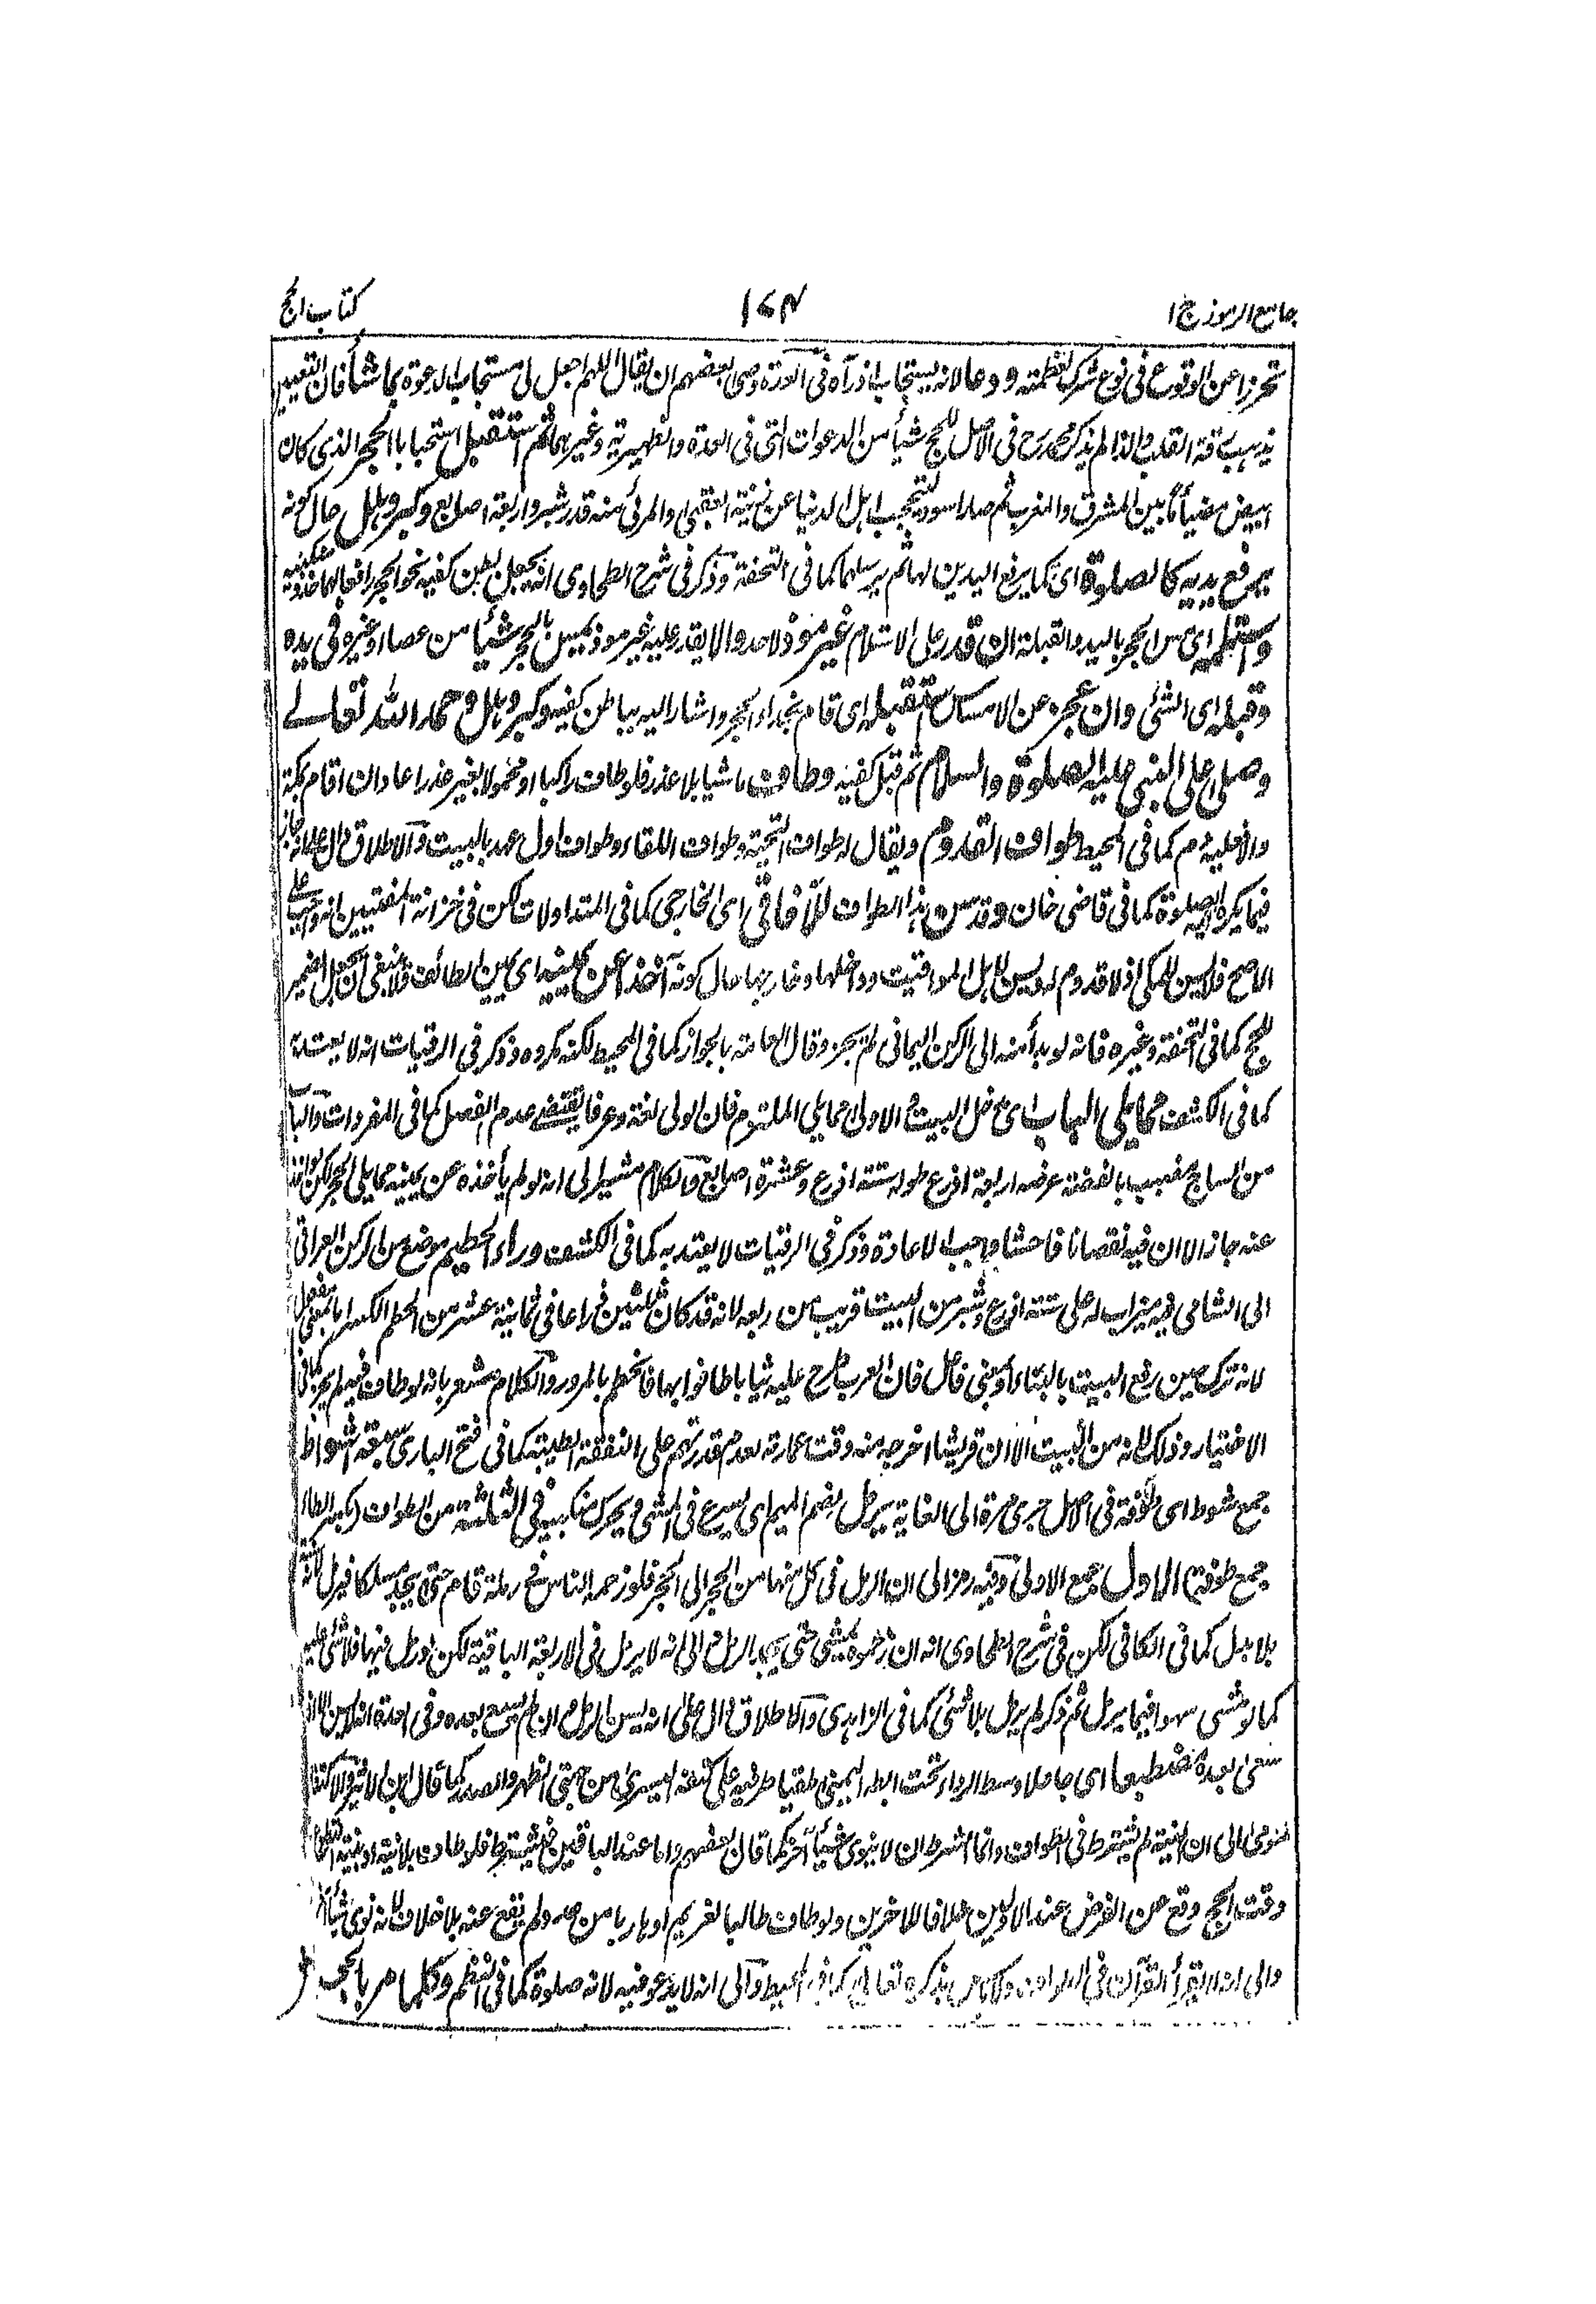 جامع الرموز ج ١
١٧٤
كتاب الحج
تحرزا عن الوقوع في نوع شرك لعظمته ودعا لانه يستجاب اذا رآه في العدة وصى بعضهم ان يقال اللهم اجعل لي مستجاب الدعوة بما شأ فان التعيين
يذهب رقة القلب ولذا لم يذكر محمد رح في الاصل للحج شيأ من الدعوات التي في العدة والظهيرية وغيرهما ثم استقبل استحبابا الحجر الذي كان
ابيض مضيأ ما بين المشرق والمغرب ثم صار اسود ليحجب اهل الدنيا عن زينة العقبى والمرئي منه قدر شبر واربعة اصابع وكبر وهلل حال كونه
يرفع يديه كالصلوة اي كما يرفع اليدين لها ثم يرسلهما كما في التحفة وذكر في شرح الطحاوي انه يجعل بطن كفيه نحو الحجر رافعا لهما حذو منكبيه
واستلمه اي مس الحجر باليد والقبلة ان قدر على الاستلام غير موذ لاحد والا يقدر عليه غير موذ يمس بالحجر شيأ من عصا او غيره في يده
وقبله اي الشئ وان عجز عن الامساس استقبله اي قام بحذاء الحجر واشار اليه بباطن كفيه وكبر وهلل وحمد الله تعالى
وصلى على النبي عليه الصلوة والسلام ثم قبل كفيه وطاف ماشيا بلا عذر فلو طاف راكبا او محمولا بغير عذر اعاد ان اقام بمكة
والا فعليه دم كما في المحيط طواف القدوم ويقال له طواف التحية وطواف اللقاء وطواف اول عهد بالبيت والاطلاق دال على انه جاز
فيما يكره الصلوة كما في قاضي خان وقد سن هذا الطواف للآفاقي اي الخارجي كما في المتداولات لكن في خزانة المفتيين انه واجب على
الاصح فلا يسن للمكي اذ لا قدوم له وليس لاهل المواقيت وداخلها وخارجها حال كونه آخذا عن يمينه اي يمين الطائف ولا ينبغي ان يجعل الضمير
للحج كما في التحفة وغيره فانه لو بدأ منه الى الركن اليماني لم يجز وقال العامة بالجواز كما في المحيط لكنه مكروه وذكر في الرقيات انه لا يعتد به
كما في الكشف مما يلي الباب اي مدخل البيت والاولى مما يلي الملتزم فان الولي لغة وعرفا يقتضي عدم الفصل كما في المفردات والباب
من الساج مضبب بالفضة عرضه اربعة اذرع طوله ستة اذرع وعشرة اصابع والكلام مشير الى انه لو لم يأخذه عن يمينه مما يلي الحجر لكن اخذ
عنه جاز الا ان فيه نقصانا فاحشا واجب الاعادة وذكر في الرقيات لا يعتد به كما في الكشف وراء الحطيم موضع من الركن العراقي
الى الشامي فيه ميزاب له على ستة اذرع وشبر من البيت قريب من ربعه لانه قد كان ثلثين ذراعا في ثمانية عشر من الحطم الكسر اما بمعنى مفعول
لانه ترك حين رفع البيت بالبناء او بمعنى فاعل فان العرب طرح عليه ثيابا طافوا بها فانحطم بالمرور والكلام مشعر بانه لو طاف فيه لم يجز كما في
الاختيار وذلك لانه من البيت الا ان قريشا اخرجه منه وقت عمارته بعدم قدرتهم على النفقة الطيبة كما في فتح الباري سبعة اشواط
جمع شوط اي طوفة في الاصل جرى مرة الى الغاية يرمل بضم الميم اي يسرع في المشي ويحرك منكبيه في الثلثة من الطواف (بكسر الطاء
جمع طوفة) الاول جمع الاولى وفيه رمز الى ان الرمل في كل منها من الحجر الى الحجر فلو زحمه الناس في رمله قام حتى يجد مسلكا فيرمل لانه
بلا بدل كما في الكافي لكن في شرح الطحاوي انه ان زحموه يمشي حتى يجد الرمل والى انه لا يرمل في الاربعة الباقية لكن لو رمل فيها فلا شئ عليه
كما لو مشى سهوا فيما يرمل ثم ذكر لم يرمل بلا شئ كما في الزاهدي والاطلاق دال على انه يسن الرمل وان لم يسع بعده وفي العدة
سعى بعده مضطبعا اي جاعلا وسط الرداء تحت ابطه اليمنى ملقيا طرفيه على كتفه اليسرى من جهتي الظهر والصدر كما قال ابن الاثير والاكتفاء
مومي الى ان النية لم تشترط في الطواف وانما الشرط ان لا ينوي شيأ آخر كما قال بعضهم واما عند الباقين فيشترط فلو طاف بلا نية او بنية التطوع
وقت الحج وقع عن الفرض عند الاولين خلافا للاخرين ولو طاف طالبا لغريم او هاربا من عدو لم يقع عنه بلا خلاف لانه نوى شيأ آخر
والى انه لا يقرأ القرآن في الطواف ولا بأس بذكره تعالى كما في المحيط والى انه لا يدعو فيه لانه صلوة كما في النظم وكلما مر بالحجر